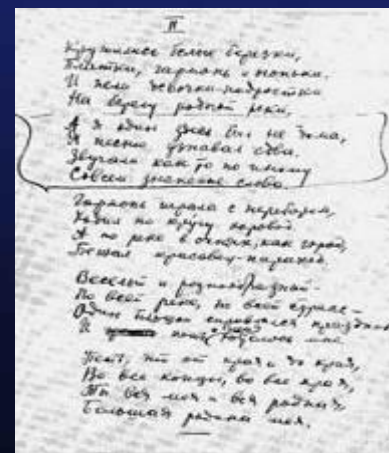 II
Кружились белые березки,
Платки, гармонь и огоньки.
И пели девочки-подростки
На берегу родной реки.
И я один здесь был не дома,
Я песню узнавал едва.
Звучали как-то по иному
Совсем знакомые слова.
Гармонь играла с перебором,
Ходил по кругу хоровод,
А по реке в огнях, как город,
Бежал красавец-пароход.
Веселый и разнообразный
По всей реке, по всей стране
Один большой справлялся праздник
И
Поет, от края и до края,
Во все концы, во все края,
Ты вся моя и вся родная,
Большая родина моя.